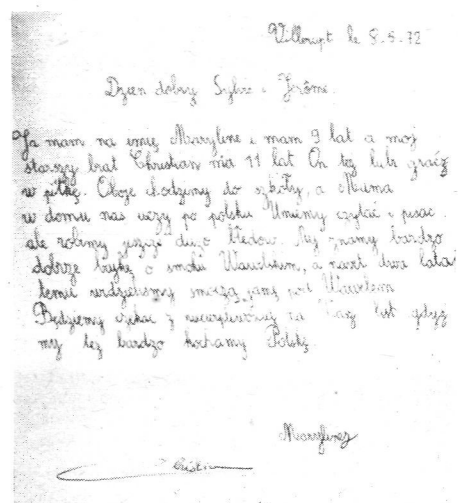 Villerupt le 8.5.72
Dzien dobry Sylvie i Jerôme.
Ja mam na imię Marylene i mam 9 lat a moj
starszy brat Christian ma 11 lat On też lubi grać
w piłkę. Oboje chodzimy do szkoły, a Mama
w domu nas uczy po polsku Umimy czytać i pisac.
ale robimy jeszcze dużo błedow. My znamy bardzo
dobrze bajkę o smoku Wawelskim, a nawet dwa lata
temu widzielismy smoczą jamę pod Wawelem
Będziemy czekac z niecierpliwoscią na Wasz list gdyz
my tez bardzo kochamy Polskę.
Marylene